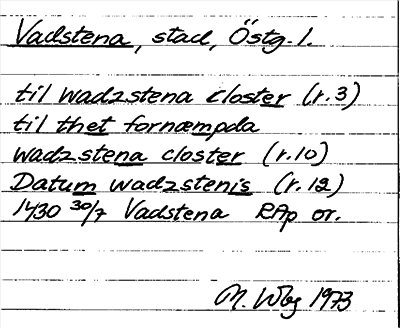 Vadstena, stad, Östg. l.
til wadzstena closter (r.3)
til thet fornæmpda
wadzstena closter (r.10)
Datum wadzstenis (r.12)
1430 30/7 Vadstena RAp or.
M. Wbg 1973